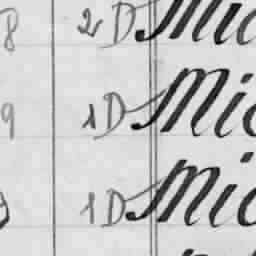 8 2 D Mic
9 1 D Mic
1 D Mic